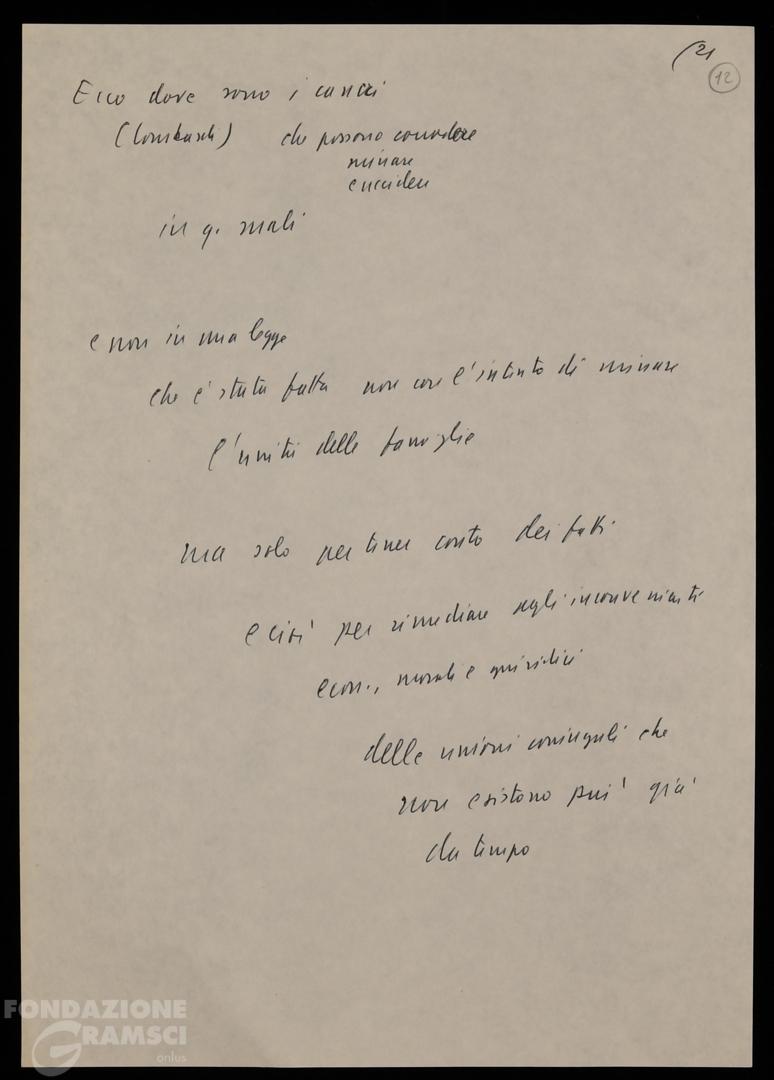 (21
12
Ecco dove sono i cancri
(Lombardi) che possono corrodere
minare
e uccidere
in q. mali
e non in una legge
che è stata fatta non con l'intento di minare
l'unità delle famiglie
ma solo per tener conto dei fatti
e cioè per rimediare agli inconvenienti
econ., morali e giuridici
delle unioni coniugali che
non esistono più già
da tempo
FONDAZIONE
GRAMSCI
onlus